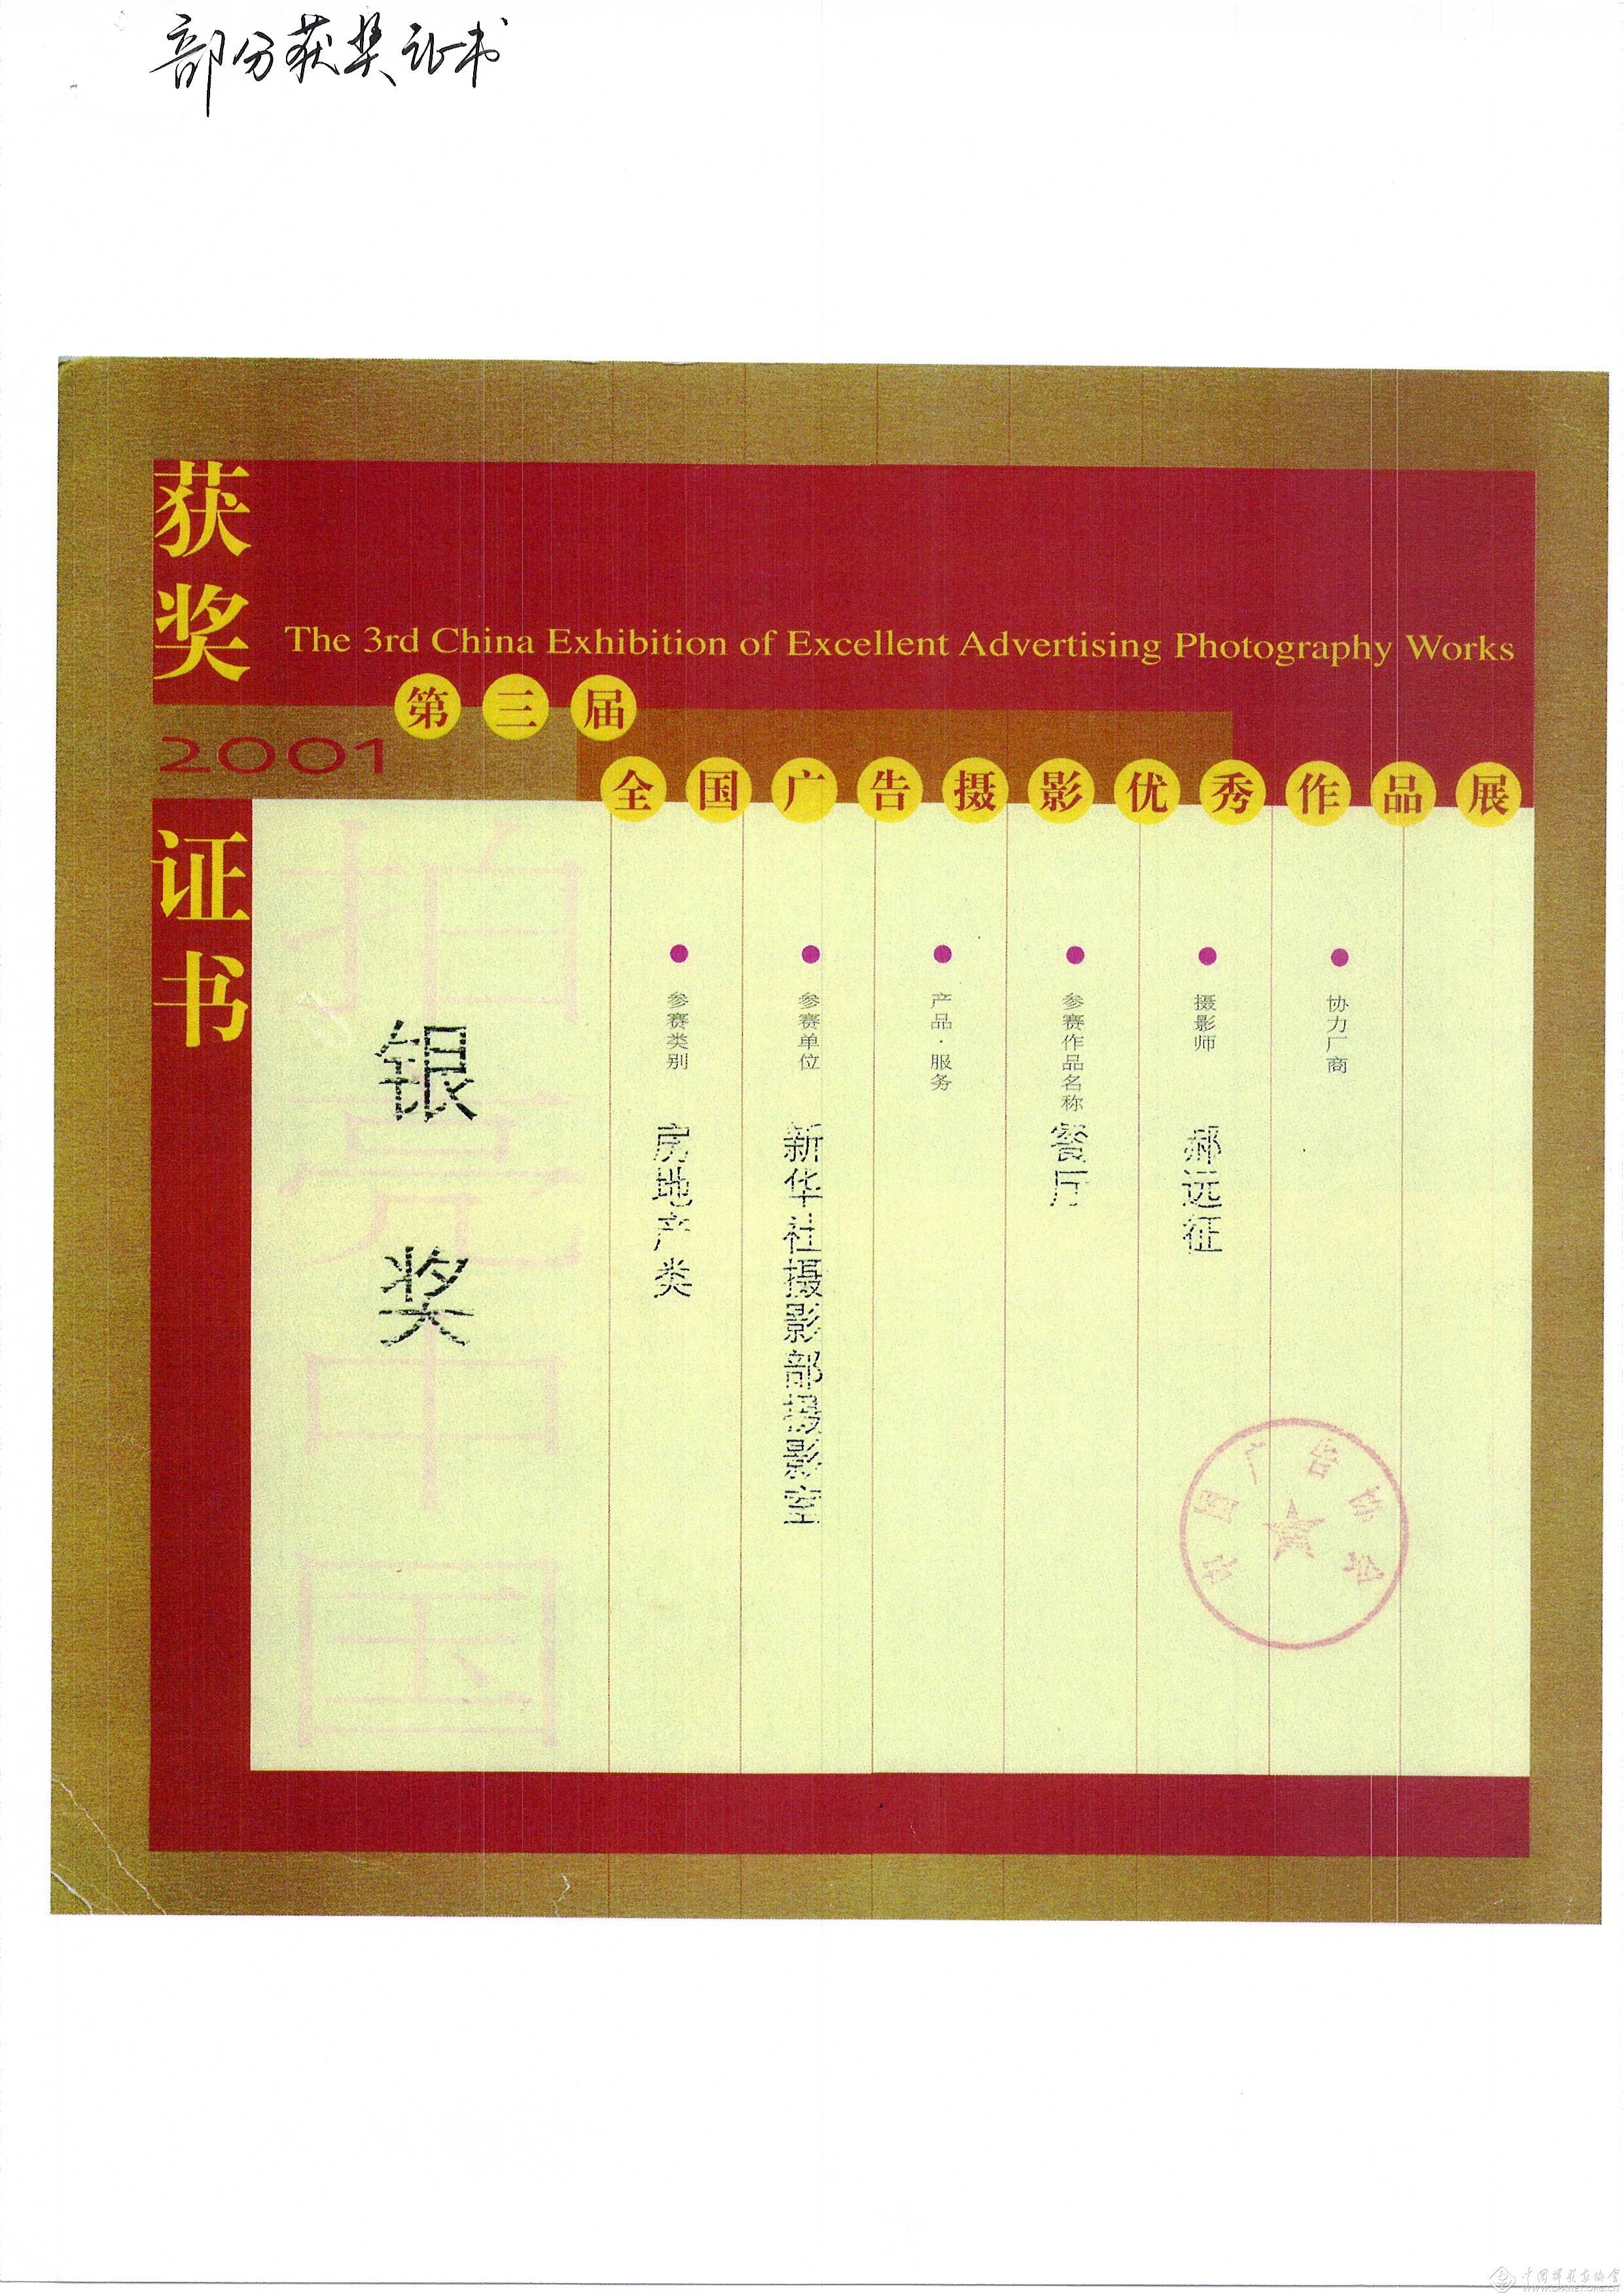 部分获奖证书
获奖
The 3rd China Exhibition of Excellent Advertising Photography Works
第三届
2001
全国广告摄影优秀作品展
证书
拍亮中国
银奖
参赛类别 房地产类
参赛单位 新华社摄影部摄影室
产品·服务
参赛作品名称 餐厅
摄影师 郝远征
协力厂商
中国广告协会
中国摄影家协会
WWW.CPANET.ORG.CN